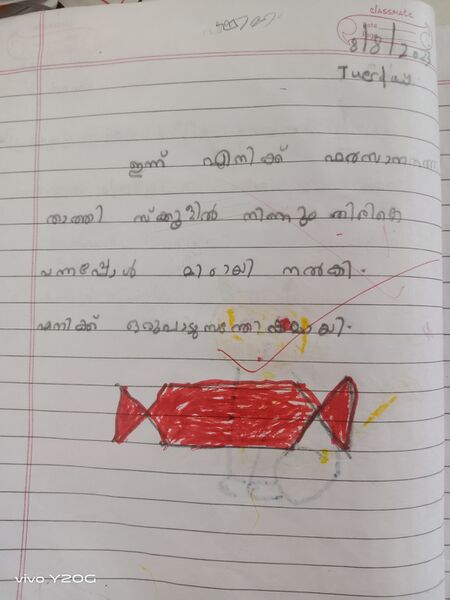 classmate
Date
Page
8/8/2023
Tuerday
ഇന്ന് എനിക്ക് ഫർസാന
താത്തി സ്ക്കൂളിൽ നിന്നും തിരികെ
വന്നപ്പോൾ മിഠായി നൽകി.
എനിക്ക് ഒരുപാട്ടു സന്തോഷമായി.
vivo Y20G